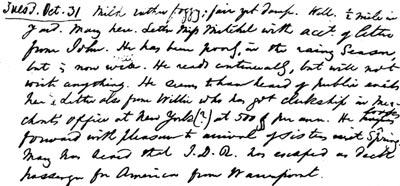 Tuesd. Oct. 31 Mild rather foggy: fair yet damp. Well. ½ mile in
yard. Mary here. Letter Miss Mitchel with acct of letter
from John. He has been poorly in the rainy season,
but is now well. He reads continually, but will not
write anything. He seems to have heard of public events
here. Letter also from Willie who has got clerkship in Mer-
chants office at New York (?) at 500 $ per ann. He looks
forward with pleasure to arrival of sisters next Spring.
Mary has heard that J.D.R. has escaped as deck
passenger for American from Warrenpoint.